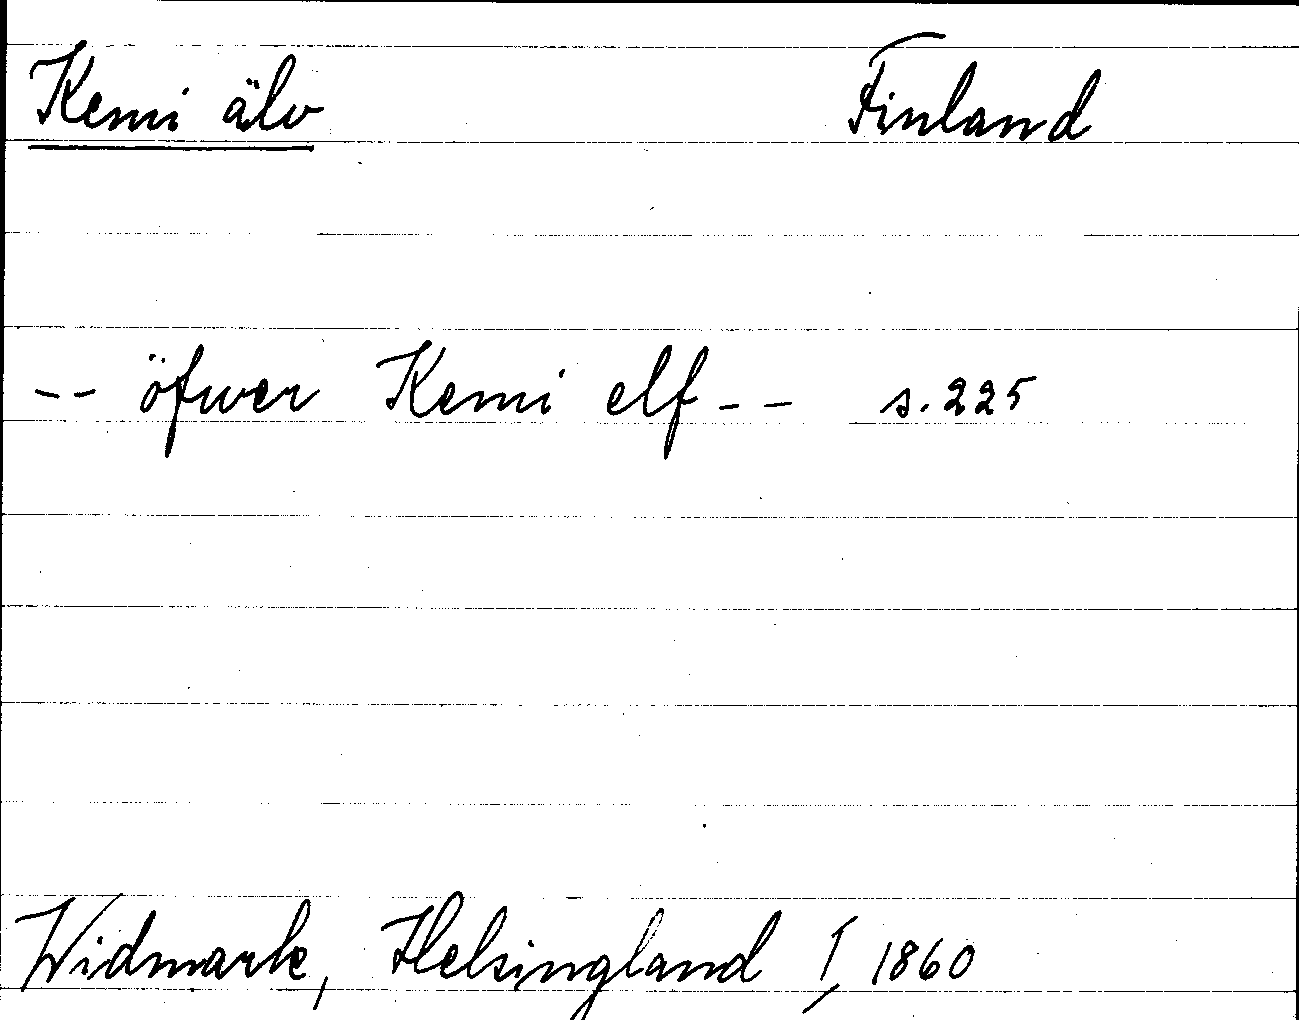 Kemi älv Finland
-- öfwer Kemi elf -- s. 225
Widmark, Helsingland I, 1860